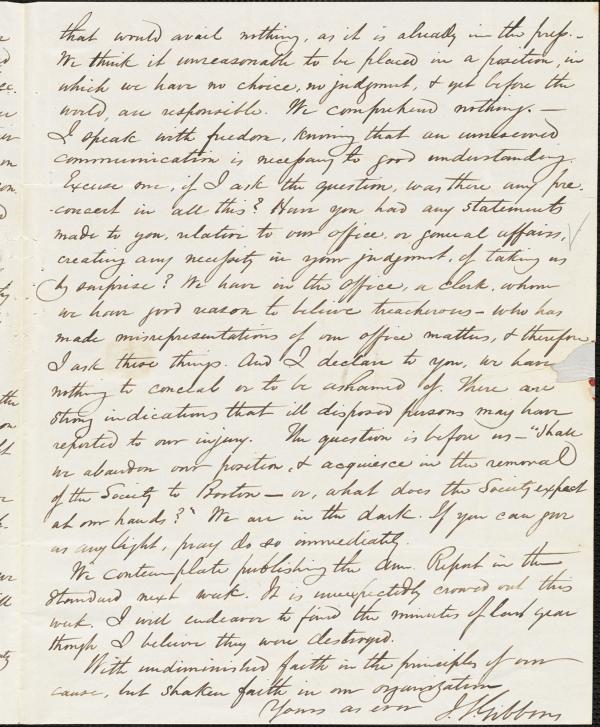 that would avail nothing, as it is already in the press.-
We think it unreasonable to be placed in a position, in
which we have no choice, no judgment, & yet before the
world, are responsible. We comprehend nothing. —
I speak with freedom, knowing that an unreserved
communication is necessary to good understanding.
Excuse me, if I ask the question, was there any pre-
-concert in all this? Have you had any statements
made to you, relation to our office, or general affairs,
creating any necessity in your judgment, of taking us
by surprise? We have in the office, a clerk, whom
we have good reason to believe treacherous - who has
made misrepresentations of our office matters, & therefore
I ask these things. And I declare to you, we have
nothing to conceal or to be ashamed of. There are
strong indications that ill disposed persons may have
reported to our injury. The question is before us - "Shall
we abandon our position, & acquiesce in the removal
of the Society to Boston — or, what does the Society expect
at our hands?" We are in the dark. If you can give
us any light, pray do so immediately.
We contemplate publishing the Ann. Report in the
Standard next week. It is unexpectedly crowed out this
week. I will endeavor to find the minutes of last year
though I believe they were destroyed.
With undiminished faith in the principles of our
cause, but shaken faith in our organization
Yours as ever J. S. Gibbons